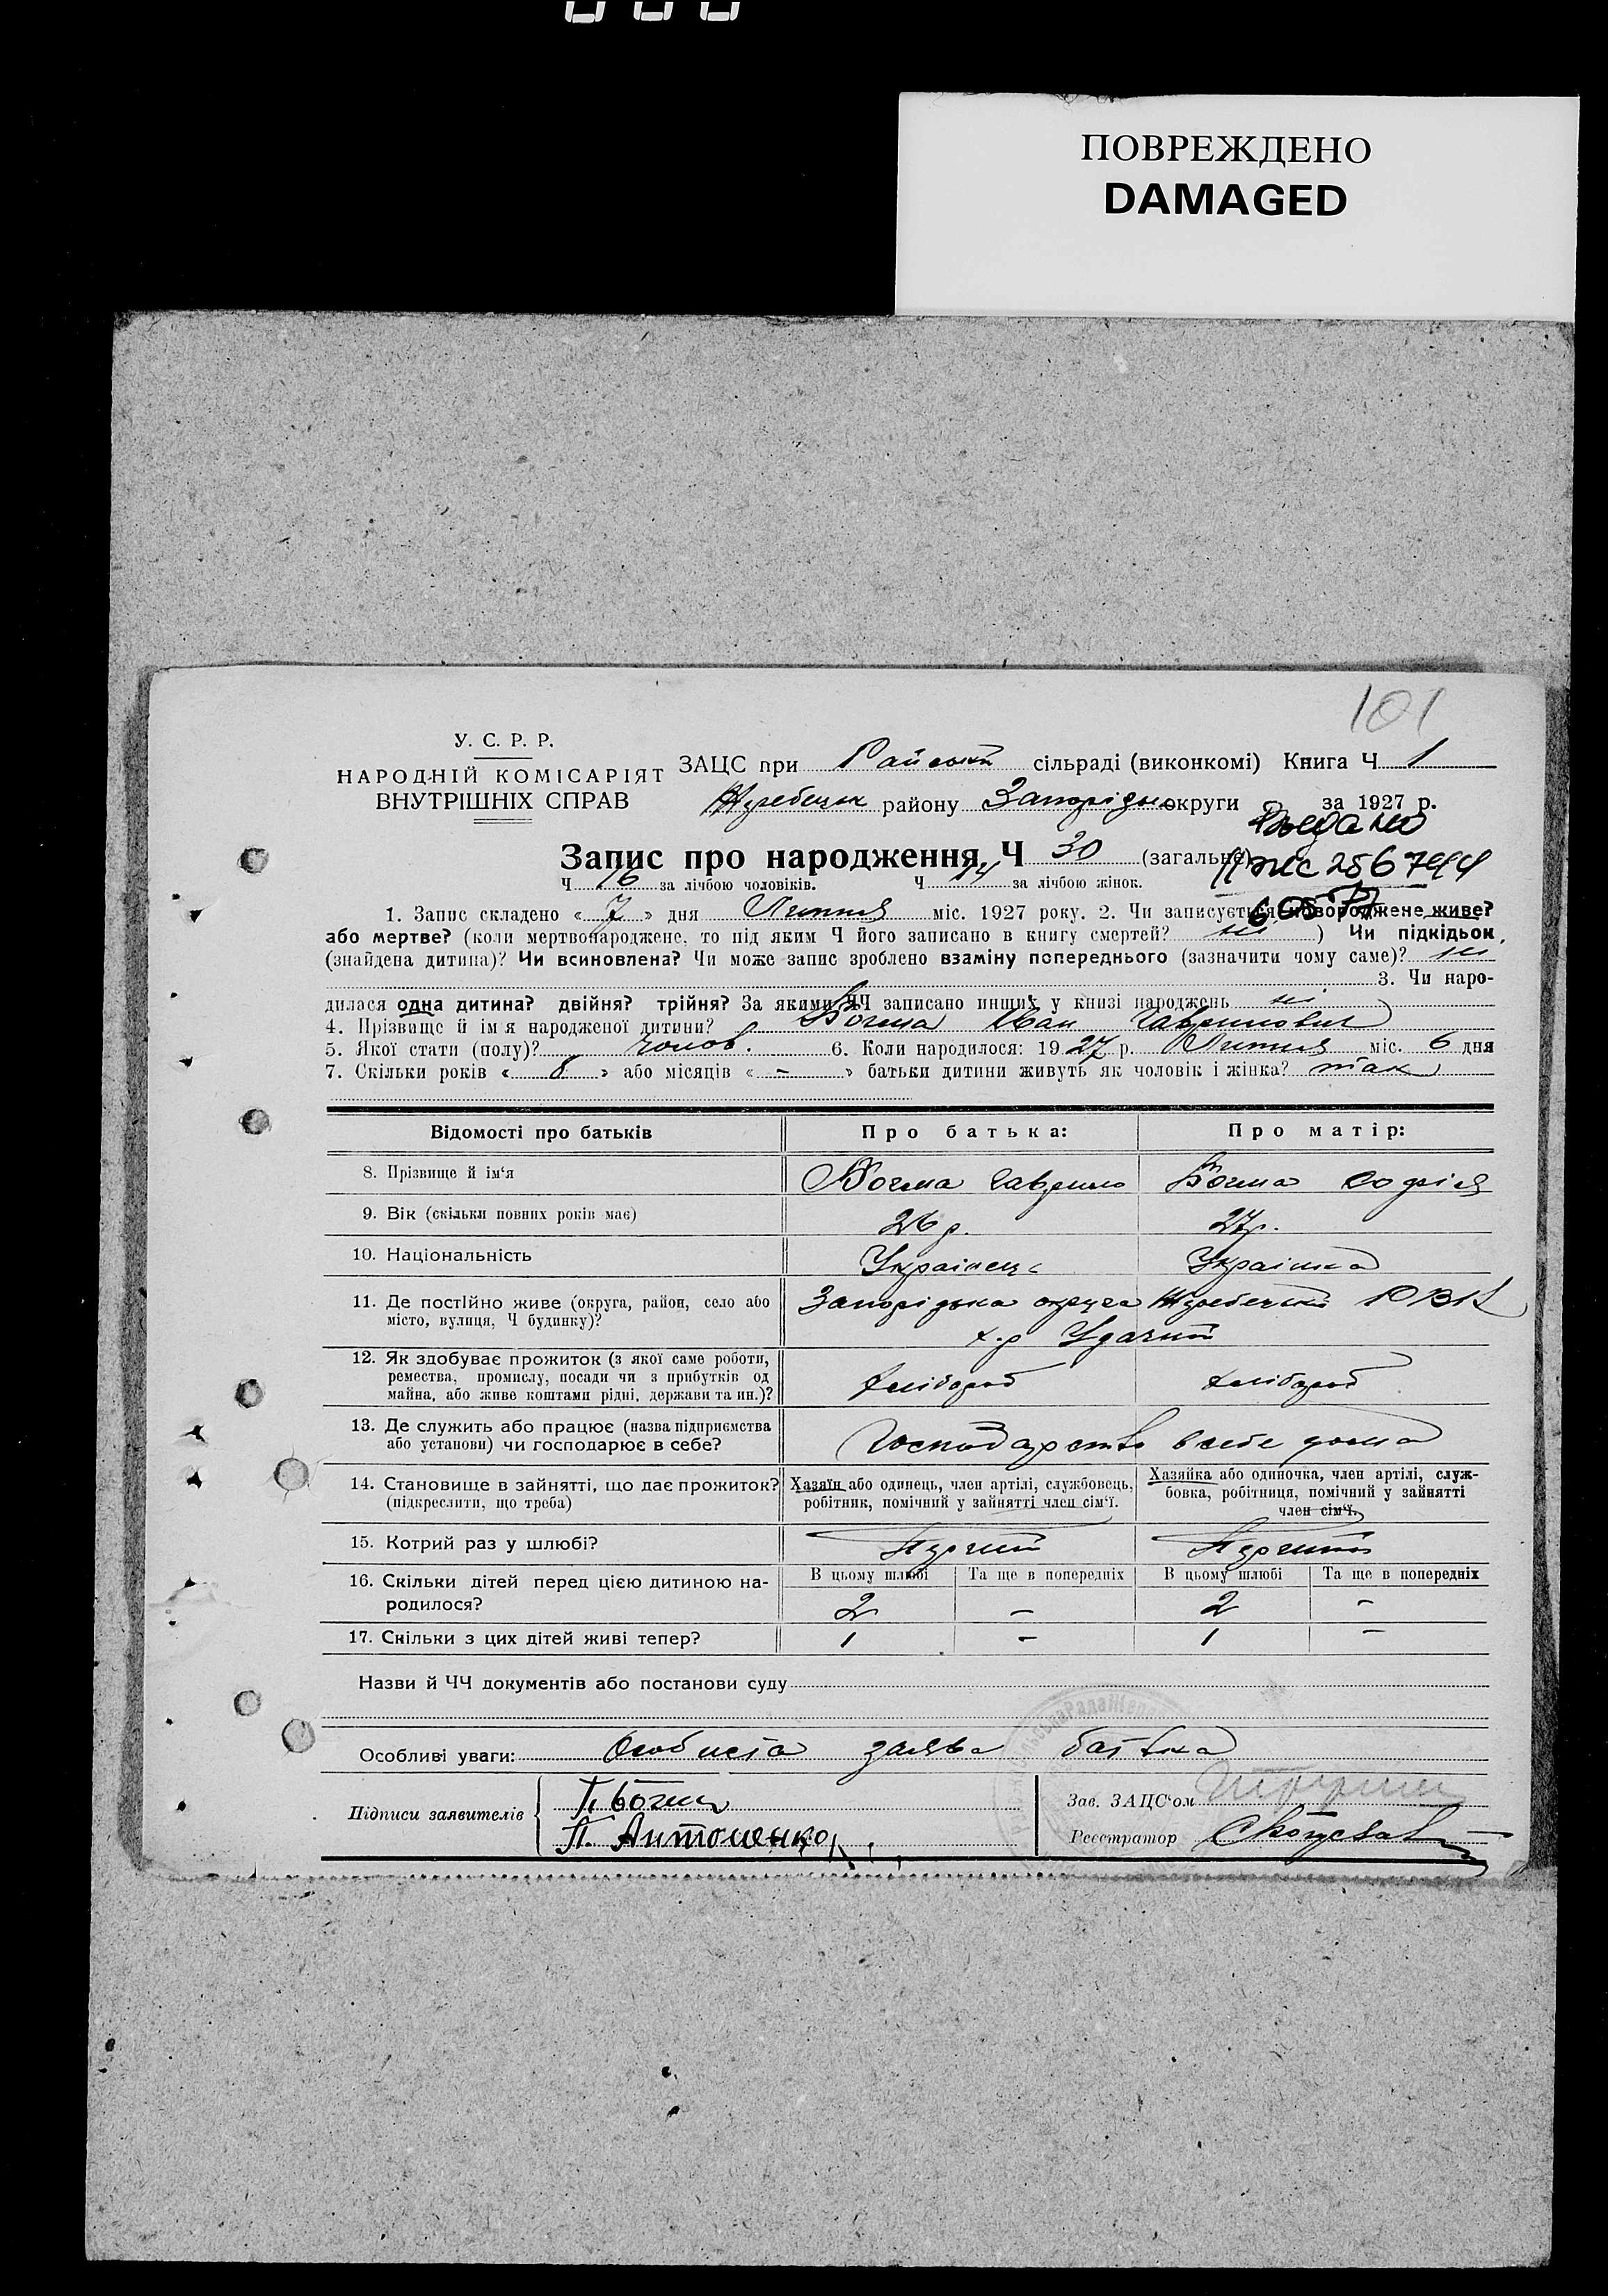 ПОВРЕЖДЕНО
DAMAGED
101
У. С. Р. Р.
НАРОДНІЙ КОМІСАРІЯТ
ВНУТРІШНІХ СПРАВ
ЗАЦС при Райській сільраді (виконкомі) Книга Ч 1
району округи за 1927 р.
Запис про народження Ч 30 (загальне)
Ч 16 за лічбою чоловіків. Ч 14 за лічбою жінок.
1. Запис складено « 7 » дня Липня міс. 1927 року. 2. Чи записується новороджене живе?
або мертве? (коли мертвонароджене, то під яким Ч його записано в книгу смертей? ні ) Чи підкідьок,
(знайдена дитина)? Чи всиновлена? Чи може запис зроблено взаміну попереднього (зазначити чому саме)? ні
3. Чи наро-
дилася одна дитина? двійня? трійня? За якими ЧЧ записано инших у книзі народжень ні
4. Прізвище й ім'я народженої дитини? Бочма Іван Гаврилович
5. Якої стати (полу)? чолов. 6. Коли народилося: 1927 р. Липня міс. 6 дня
7. Скільки років « 8 » або місяців « - » батьки дитини живуть як чоловік і жінка? так
Відомості про батьків Про батька: Про матір:
8. Прізвище й ім'я Бочма Гаврило Бочма Софія
9. Вік (скільки повних років має) 26 р. 27 р.
10. Національність Українець Українка
11. Де постійно живе (округа, район, село або Запорізька округа Жеребецький
місто, вулиця, Ч будинку)? х-р Удачний
12. Як здобуває прожиток (з якої саме роботи,
ремества, промислу, посади чи з прибутків од хлібороб хлібороб
майна, або живе коштами рідні, держави та ин.)?
13. Де служить або працює (назва підприємства
або установи) чи господарює в себе? Господарство в себе дома
14. Становище в зайнятті, що дає прожиток? Хазяїн або одинець, член артілі, службовець, Хазяйка або одиночка, член артілі, служ-
(підкреслити, що треба) робітник, помічний у зайнятті член сім'ї. бовка, робітниця, помічний у зайнятті
член сім'ї.
15. Котрий раз у шлюбі? Перший Перший
16. Скільки дітей перед цією дитиною на- В цьому шлюбі Та ще в попередніх В цьому шлюбі Та ще в попередніх
родилося? 2 - 2 -
17. Скільки з цих дітей живі тепер? 1 - 1 -
Назви й ЧЧ документів або постанови суду
Особливі уваги: Особиста заява батька
Підписи заявителів Г. Бочма
П. Антоненко
Зав. ЗАЦС'ом
Реєстратор